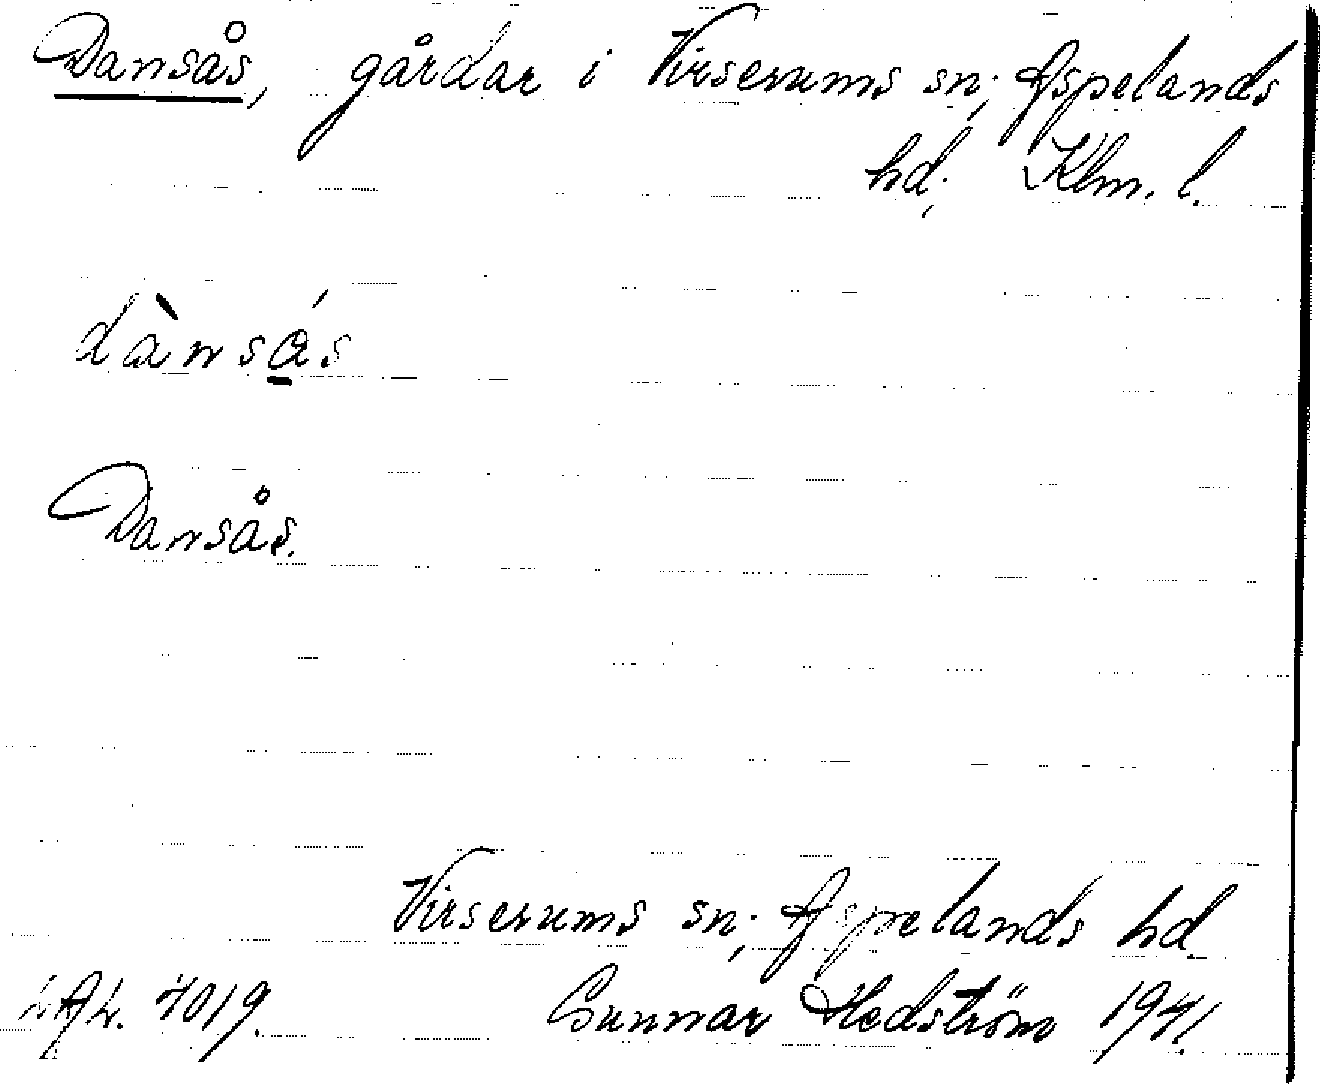 Dansås, gårdar i Virserums sn; Aspelands
hd; Klm. l.
dànsás
Dansås.
Virserums sn; Aspelands hd.
LAL. 4019. Gunnar Hedström 1941.